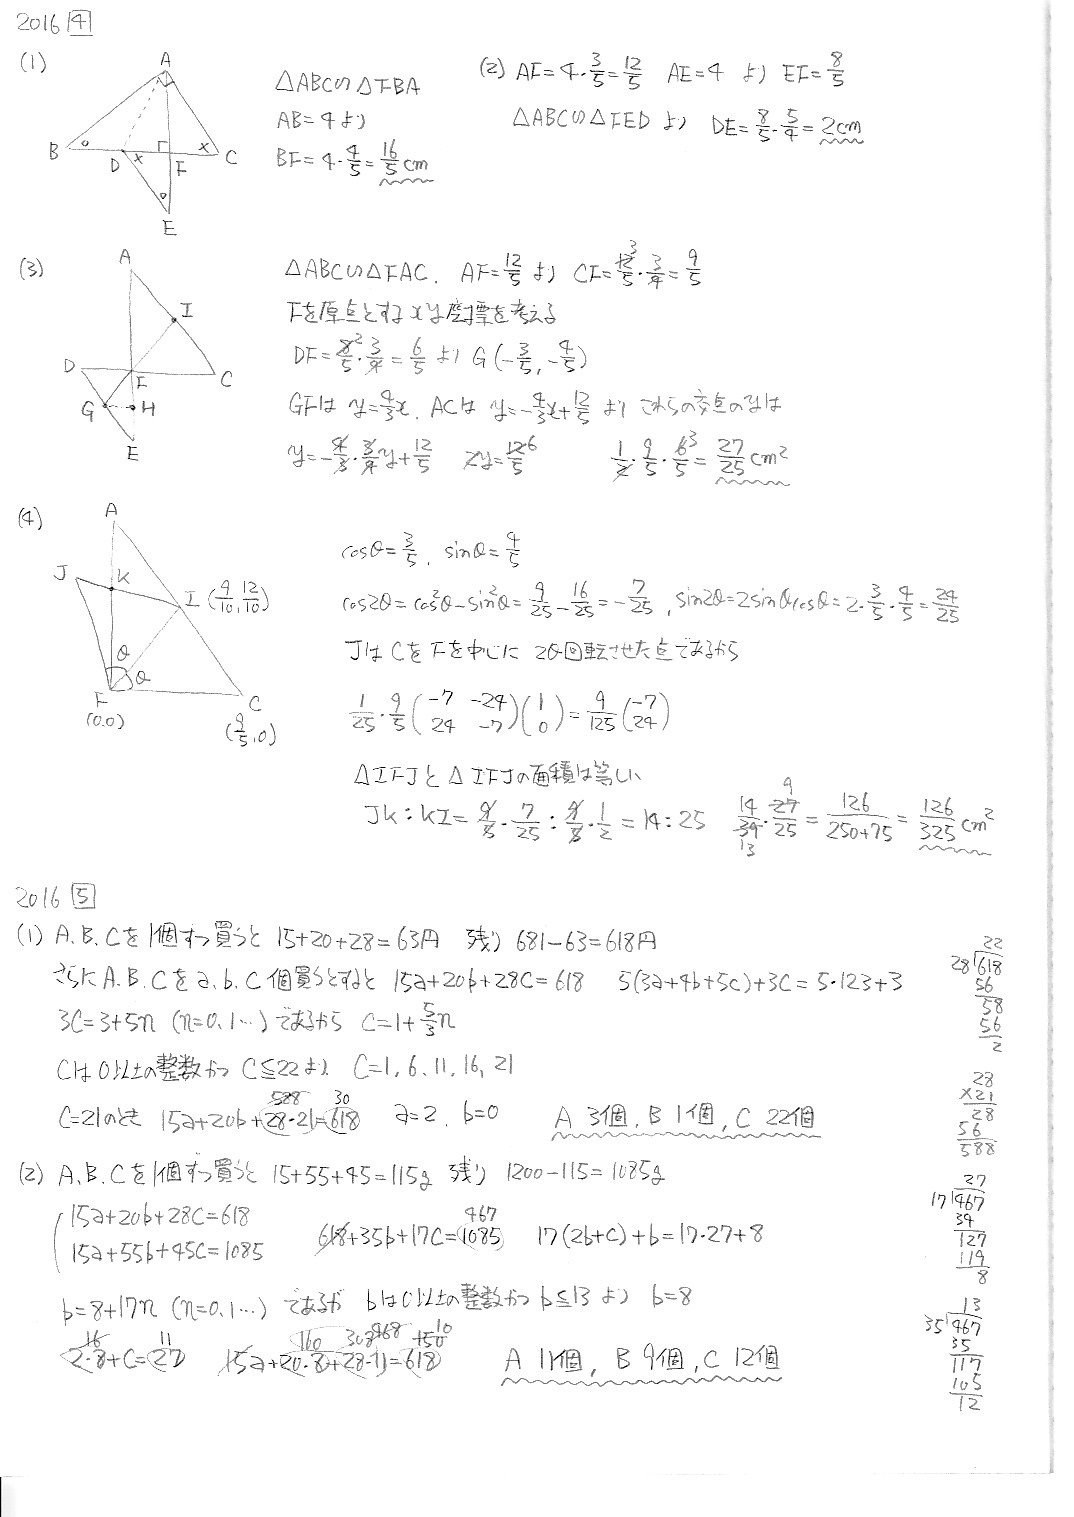 2016 4
(1)
A
B
D
F
C
E
○
×
×
○
△ABC∽△FBA
AB=4より
BF=4・4/5=16/5cm
(2) AF=4・3/5=12/5 AE=4 より EF=8/5
△ABC∽△FED より DE=8/5・5/4=2cm
(3)
A
I
D
F
C
G
H
E
△ABC∽△FAC. AF=12/5 より CF=12/5・3/4=9/5
3
Fを原点とするxy座標を考える
DF=8/5・3/4=6/5 より G(-3/5, -4/5)
2
GFは y=4/3x. ACは y=-4/3x+12/5 より これらの交点のyは
y=-4/3・3/4y+12/5 2y=12/5 1/2・9/5・6/5=27/25cm²
6
3
(4)
A
J
K
I (9/10, 12/10)
θ
θ
F
(0.0)
C
(9/5, 0)
cosθ=3/5. sinθ=4/5
cos2θ=cos²θ-sin²θ=9/25-16/25=-7/25, sin2θ=2sinθcosθ=2・3/5・4/5=24/25
JはCをFを中心に2θ回転させた点であるから
1/25・9/5(-7 -24 24 -7)(1 0)=9/125(-7 24)
△IFJと△IFJの面積は等しい
JK:KI=9/5・7/25:9/5・1/2=14:25 14/39・27/25=126/250+75=126/325cm²
9
13
2016 5
(1) A.B.Cを1個ずつ買うと 15+20+28=63円 残り 681-63=618円
さらにA.B.Cをa.b.c個買うとすると 15a+20b+28c=618 5(3a+4b+5c)+3c=5・123+3
3c=3+5n (n=0.1…)であるから c=1+5/3n
cは0以上の整数かつ c≦22より c=1.6.11.16.21
588
30
c=21のとき 15a+20b+28・21=618 a=2. b=0 A 3個, B 1個, C 22個
22
28)618
56
58
56
2
28
×21
28
56
588
(2) A.B.Cを1個ずつ買うと 15+55+45=115g 残り 1200-115=1085g
15a+20b+28c=618
15a+55b+45c=1085
467
618+35b+17c=1085 17(2b+c)+b=17・27+8
b=8+17n (n=0.1…) であるが bは0以上の整数かつ b≦13 より b=8
16
11
2・8+c=27
160
308
468
150
10
15a+20・8+28・11=618 A 11個, B 9個, C 12個
27
17)467
34
127
119
8
13
35)467
35
117
105
12